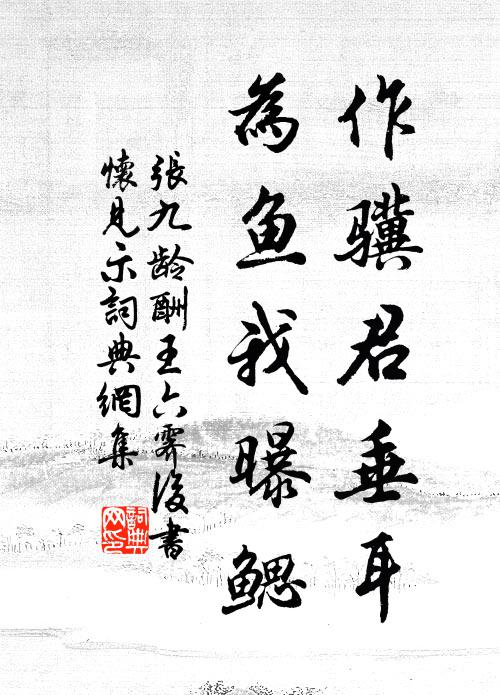 作骥君垂耳
為鱼我曝鳃
張九龄酬王六霁後書
懷見示詞典網集
詞典
网印